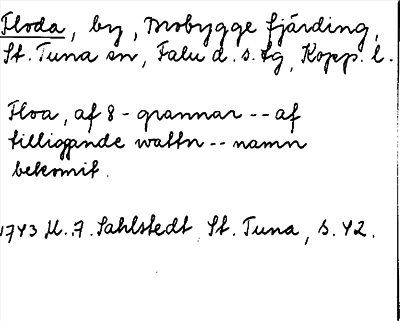 Floda, by, Mobygge fjärding,
St. Tuna sn, Falu d. s. tg, Kopp. l.
Floa, af 8 - grannar -- af
tilliggande wattn -- namn
bekomit.
1743 U. 7. Sahlstedt St. Tuna, s. 42.